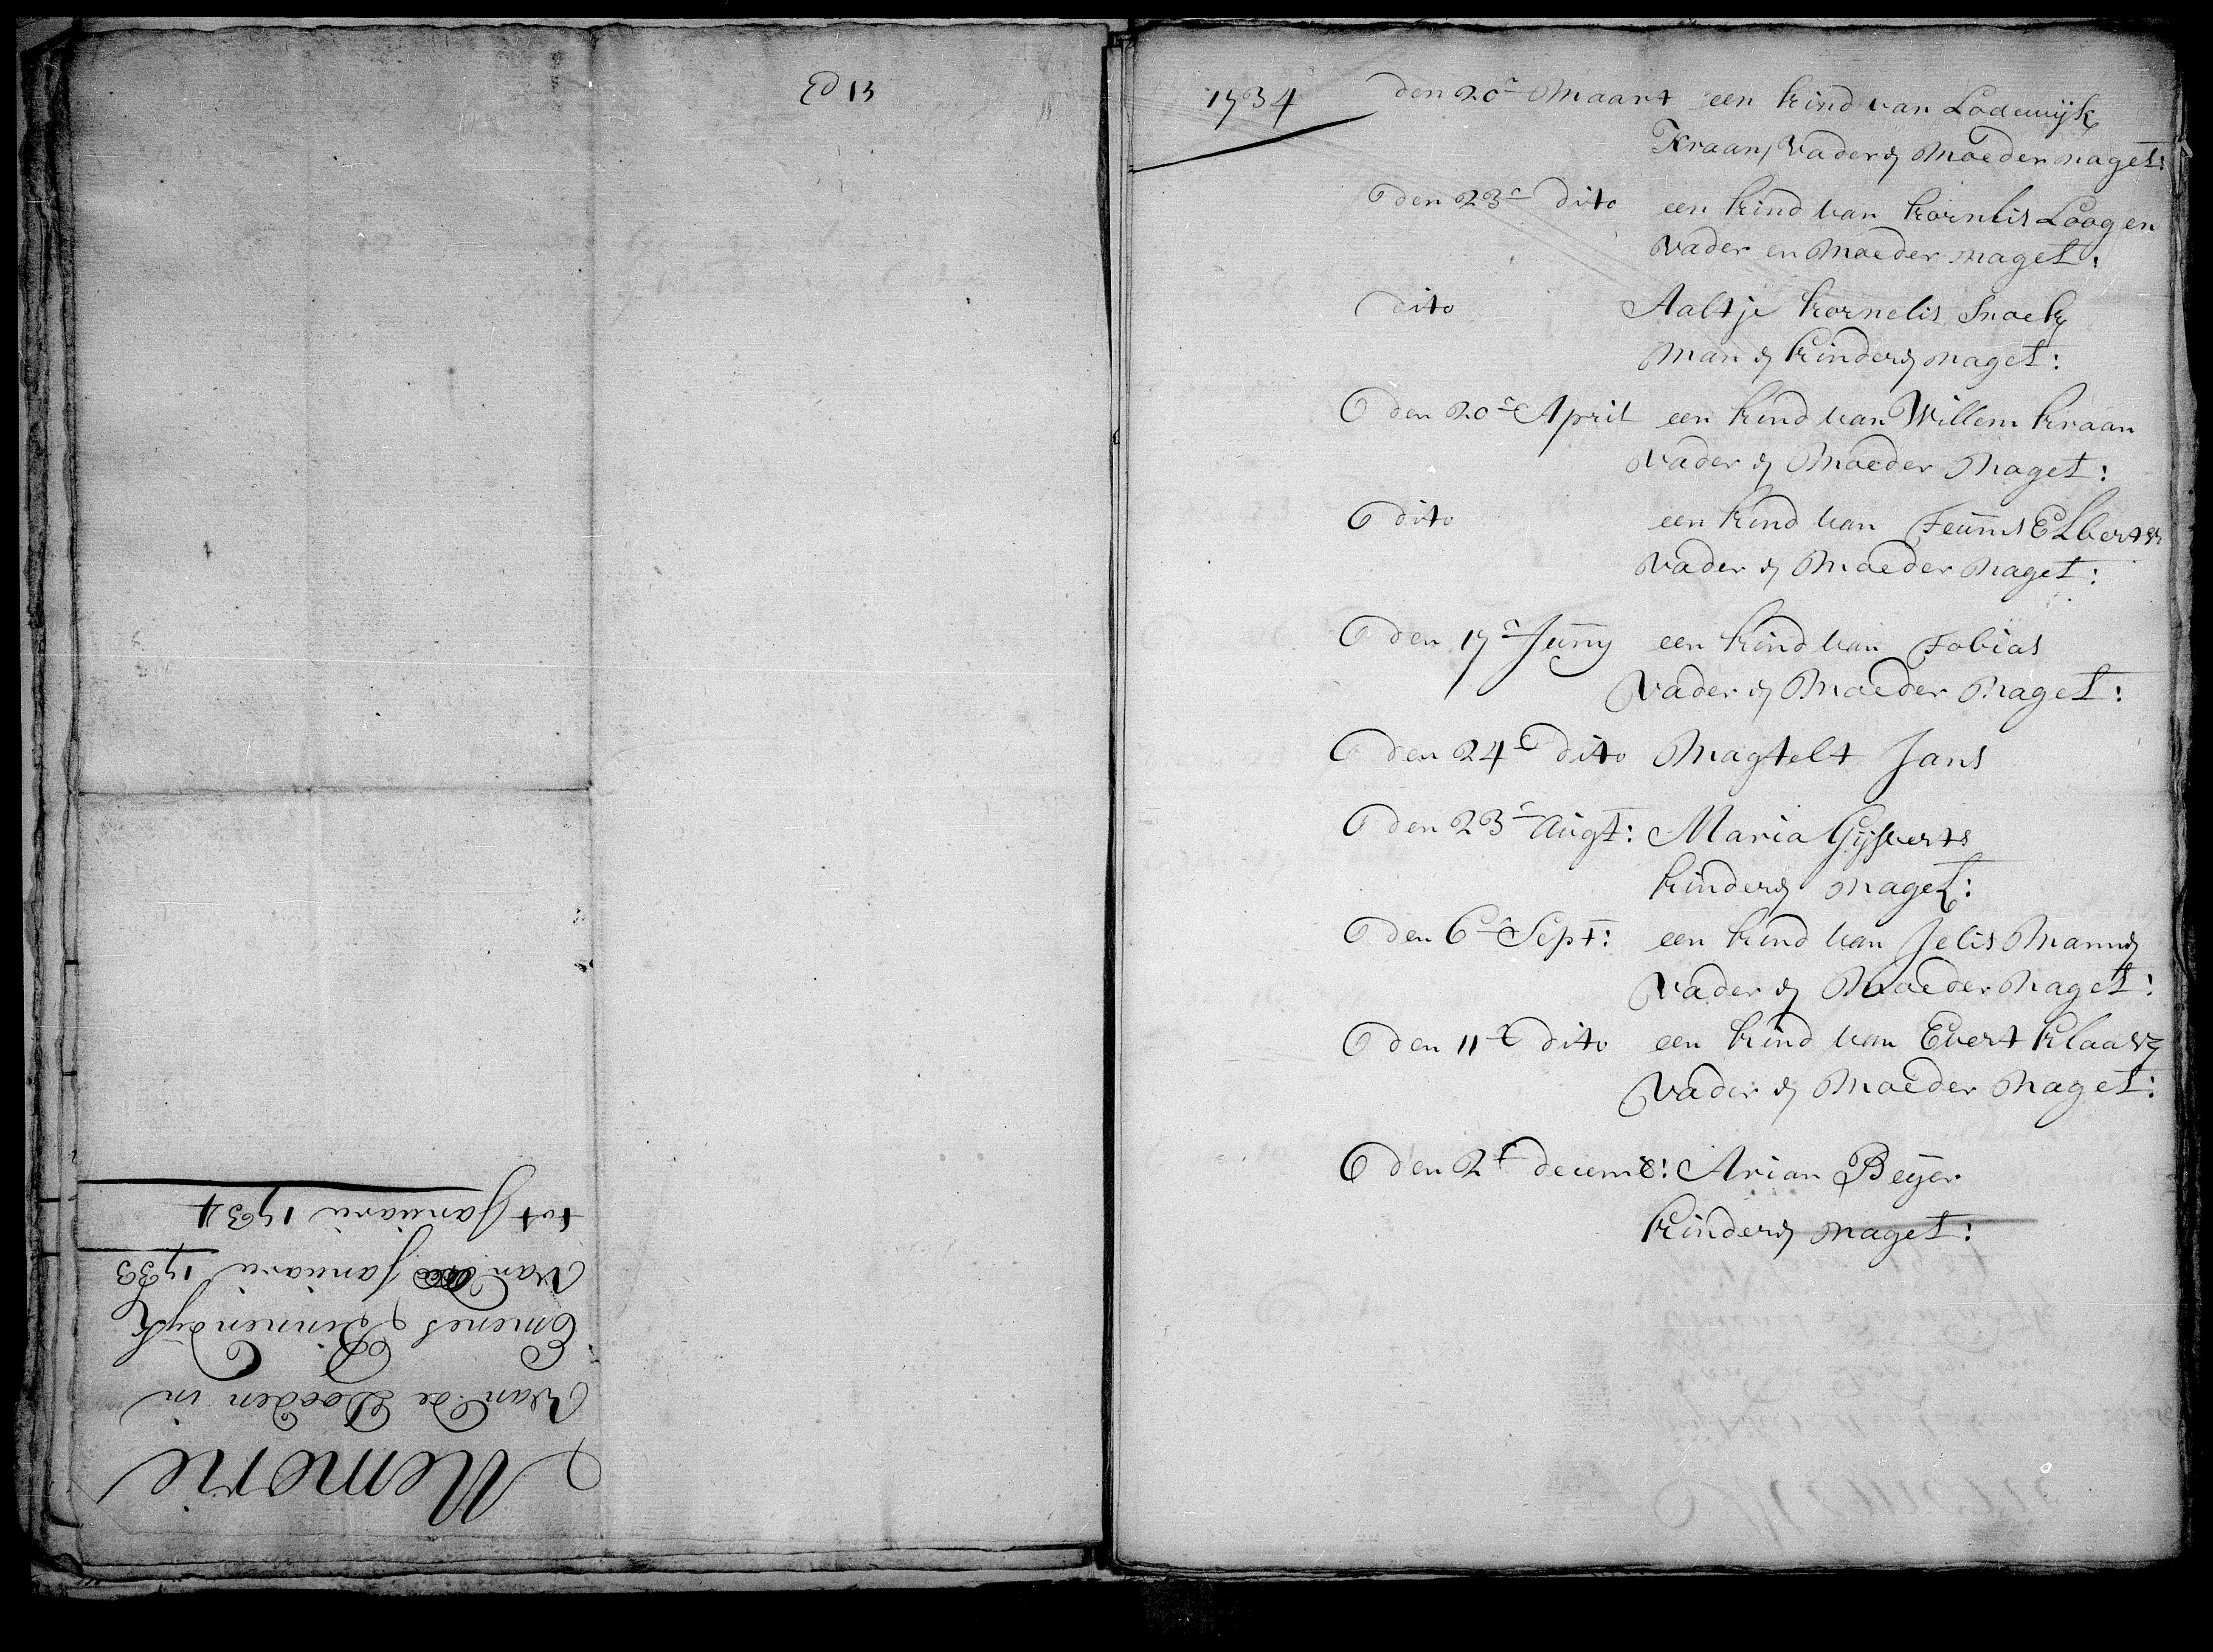 Memorie
Van de Dooden in
Emenes Binnendyk
Van Januarii 1733
tot Januarii 1734
1734
den 20e Maart een kind van Lodewijk
Kraan, Vader en Moeder naget:
den 23e dito een kind van Kornelis Loogen
Vader en Moeder naget:
dito Aaltje Kornelis Snoek
Man en kinderen naget:
den 20e April een kind van Willem Kraan
Vader en Moeder Naget:
dito een kind van Teunis Elberts
Vader en Moeder Naget:
den 17e Juny een kind van Tobias
Vader en Moeder Naget:
den 24e dito Magtelt Jans
den 23e Augt: Maria Gijsberts
kinderen naget:
den 6e Sept: een kind van Jelis Mannen
Vader en Moeder Naget:
den 11e dito een kind van Evert Klaasz
Vader en Moeder Naget:
den 2e decemb: Arian Beijer
kinderen naget: